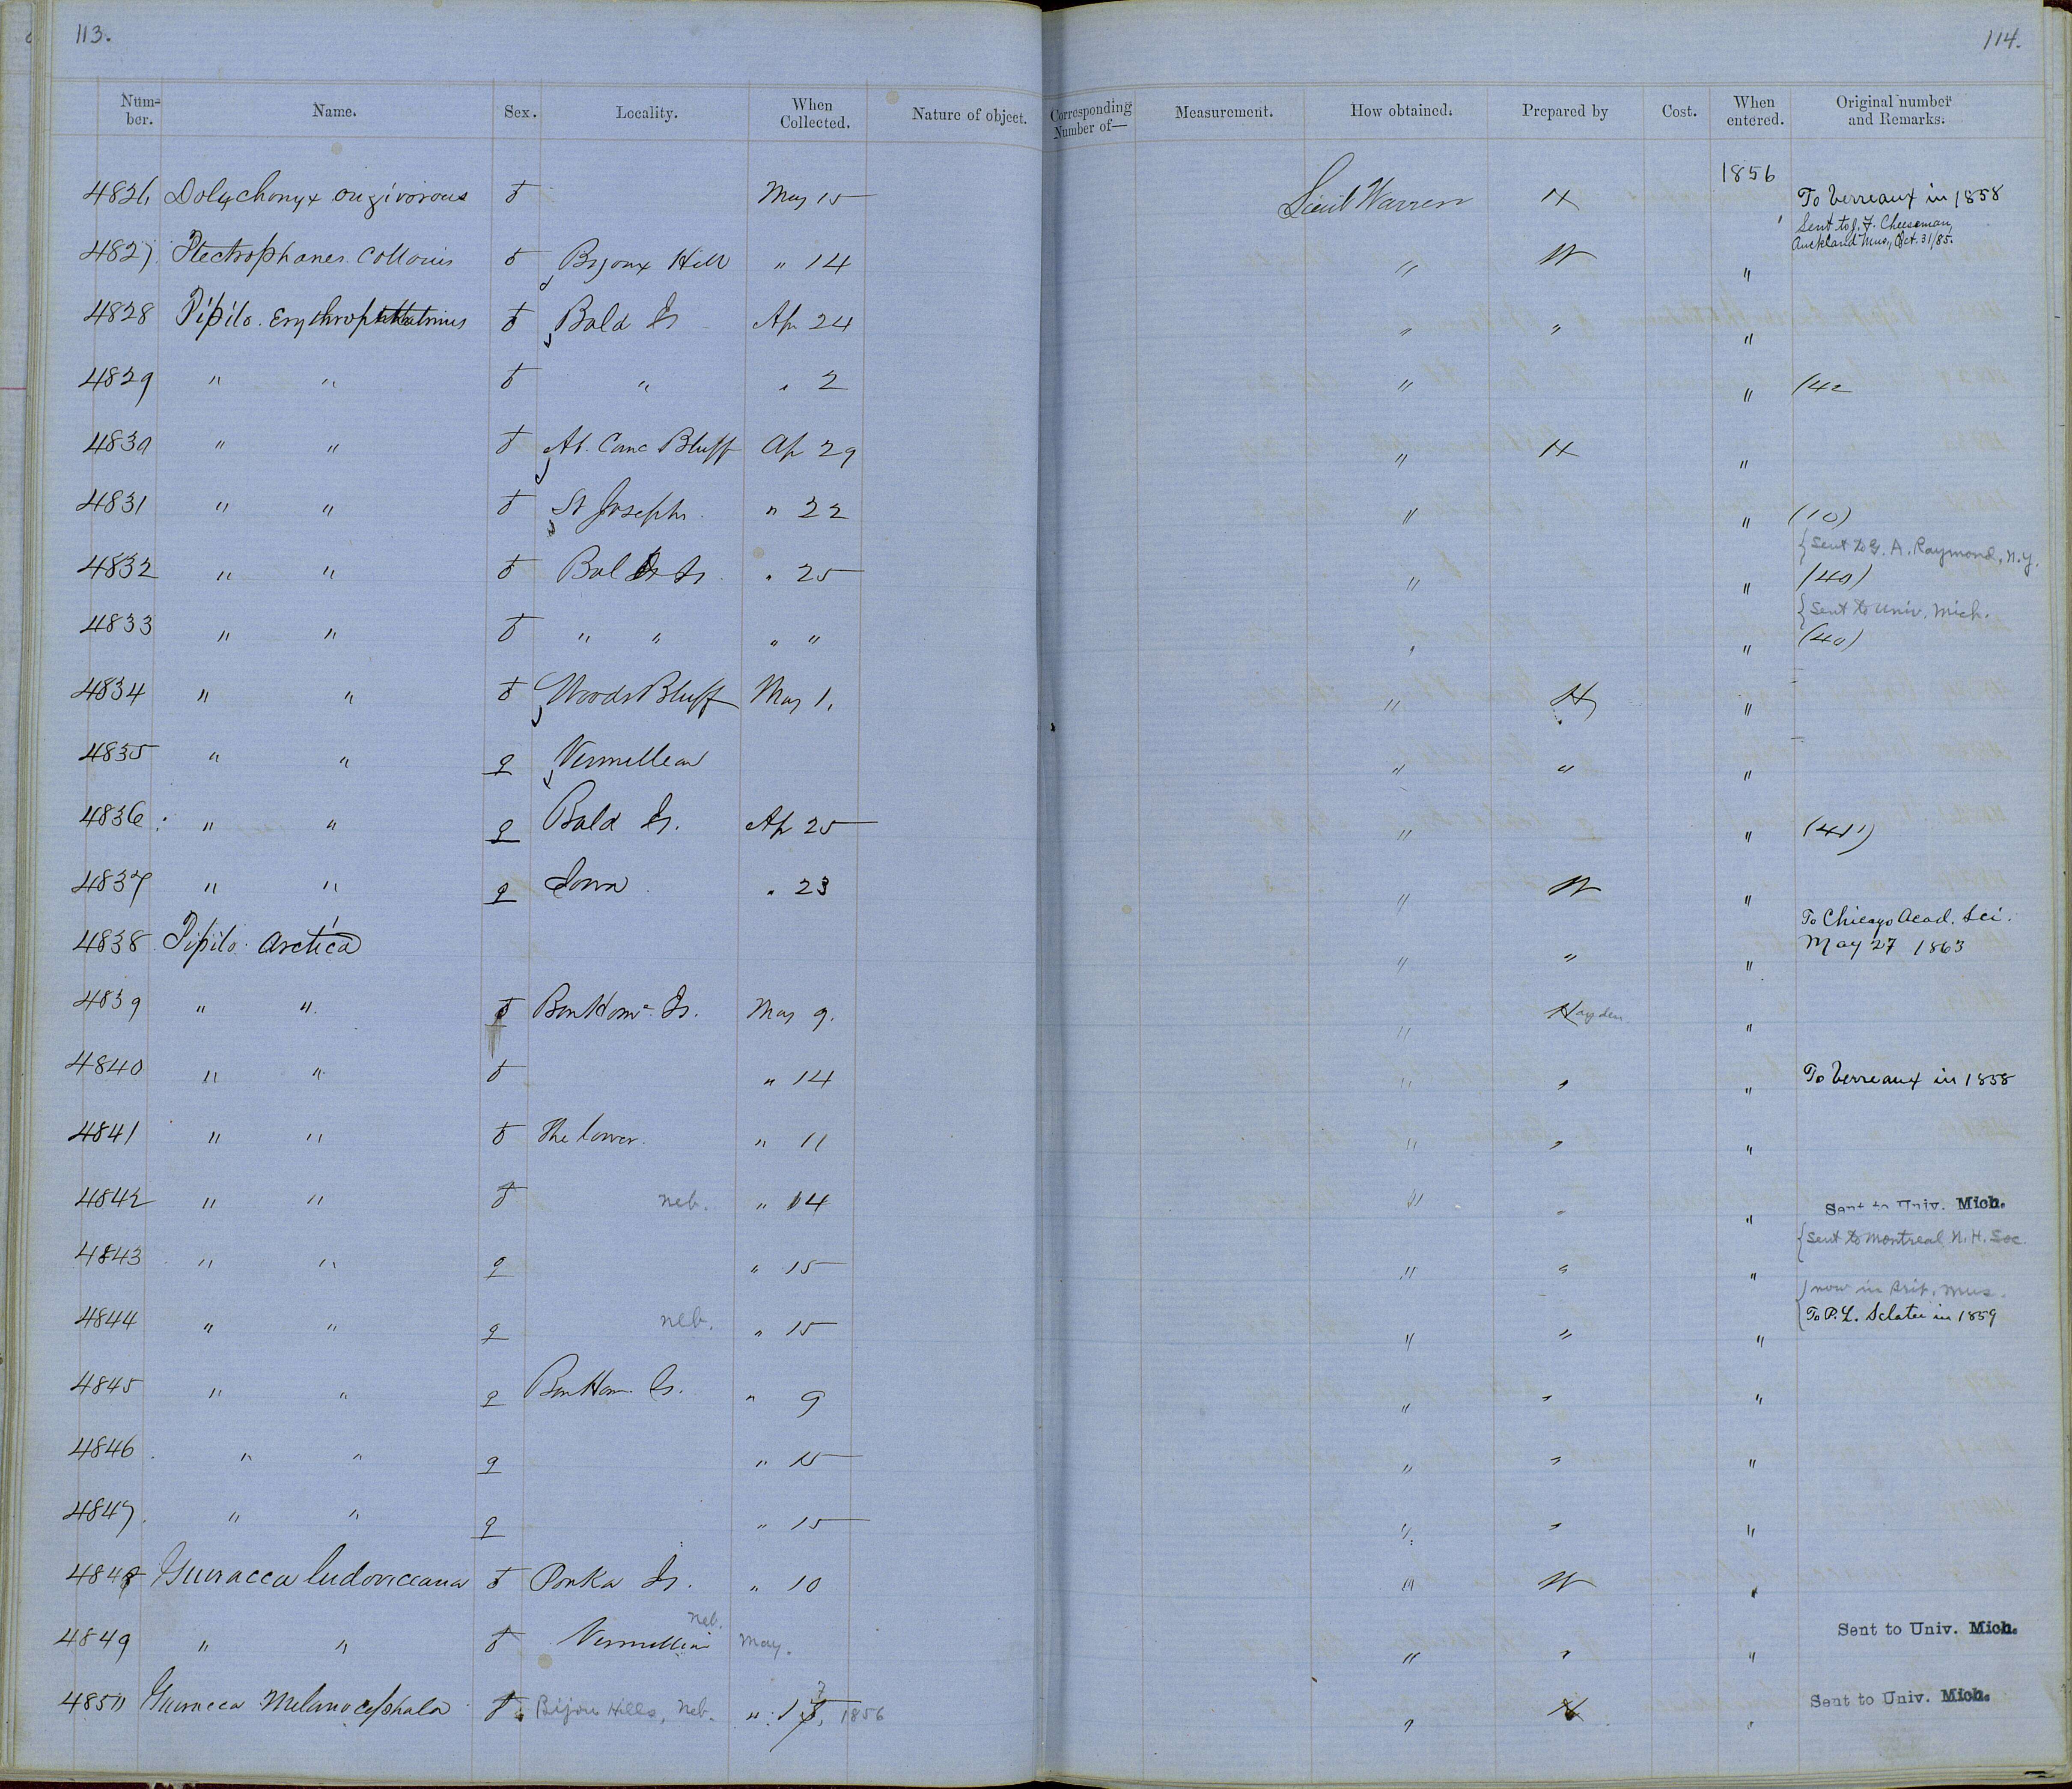 113.
114.
Num-ber. Name. Sex. Locality. When Collected. Nature of object. Corresponding Number of— Measurement. How obtained. Prepared by Cost. When entered. Original number and Remarks.
4826 Dolychonyx orizivorous ♂ May 15 Lieut Warren H 1856 To Verreaux in 1858
Sent to J. F. Cheeseman, Auckland Mus., Oct. 31/85.
4827. Plectrophanes ♂ Bijoux Hill " 14 " W "
4828 Pipilo. ♂ Bald Is Ap 24 " " "
4829 " " ♂ " " 2 " " (42
4830 " " ♂ Ab. Bluff Ap 29 " H "
4831 " " ♂ St Josephs. " 22 " " (10)
{Sent to G. A. Raymond, N.Y.
4832 " " ♂ Bald Is. " 25 " " (40)
{Sent to Univ. Mich.
4833 " " ♂ " " " " " " (40)
4834 " " ♂ Woods Bluff May 1. " H "
4835 " " ♀ " " "
4836 " " ♀ Bald Is. Ap 25 " " (41)
4837 " " ♀ Iowa " 23 " W "
4838 Pipilo. Arctica " " " To Chicago Acad. Sci. May 27 1863
4839 " " ♂ Bon Home Is. May 9. " Hayden "
4840 " " ♂ " 14 " " " To Verreaux in 1858
4841 " " ♂ The lower. " 11 " " "
4842 " " ♂ Neb. " 14 " " " Sent to Univ. Mich.
4843 " " ♀ " 15 " " " {Sent to Montreal N. H. Soc.
4844 " " ♀ Neb. " 15 " " " {now in Brit. Mus.
To P. L. Sclater in 1859
4845 " " ♀ Bon Hom. Is. " 9 " " "
4846 " " ♀ " 15 " " "
4847. " " ♀ " 15 " " "
4848 Guiracca ludoviciana ♂ Ponka Is. " 10 " W "
4849 " " ♂ Vermillion Neb. May. " " " Sent to Univ. Mich.
4850 Guiracca Melanocephala ♂ Bijou Hills, Neb. " 1856 " H " Sent to Univ. Mich.